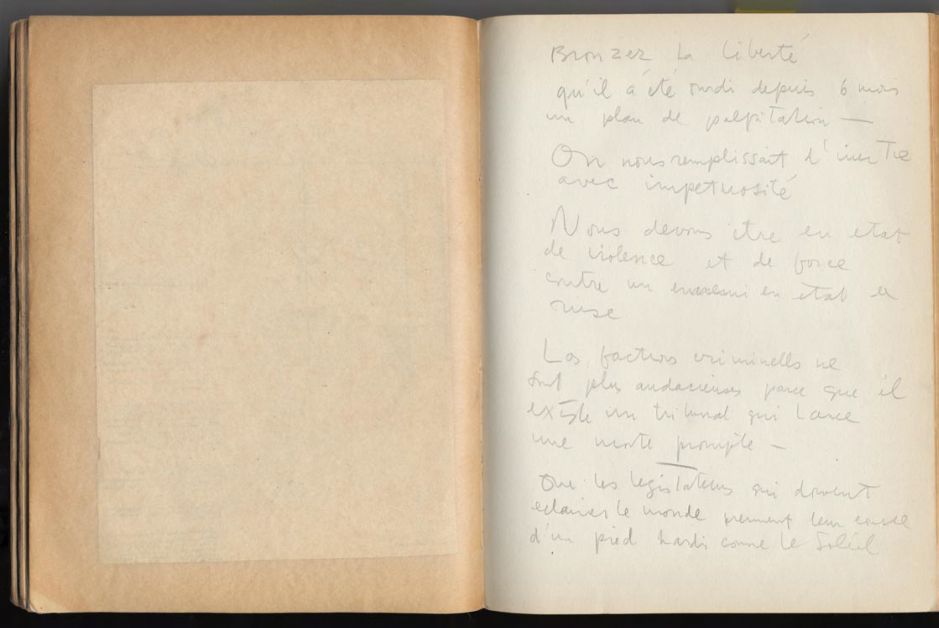 Bronzer la liberté
qu'il a été ourdi depuis 6 mois
un plan de palpitation —
On nous remplissait d'inertie
avec impetuosité
Nous devons être en etat
de violence et de force
contre un ennemi en etat de
ruse
Les factions criminelles ne
sont plus audacieuses parce que il
existe un tribunal qui lance
une morte prompte —
Que les legislateurs qui doivent
eclairer le monde prennent leur course
d'un pied hardi comme le Soleil